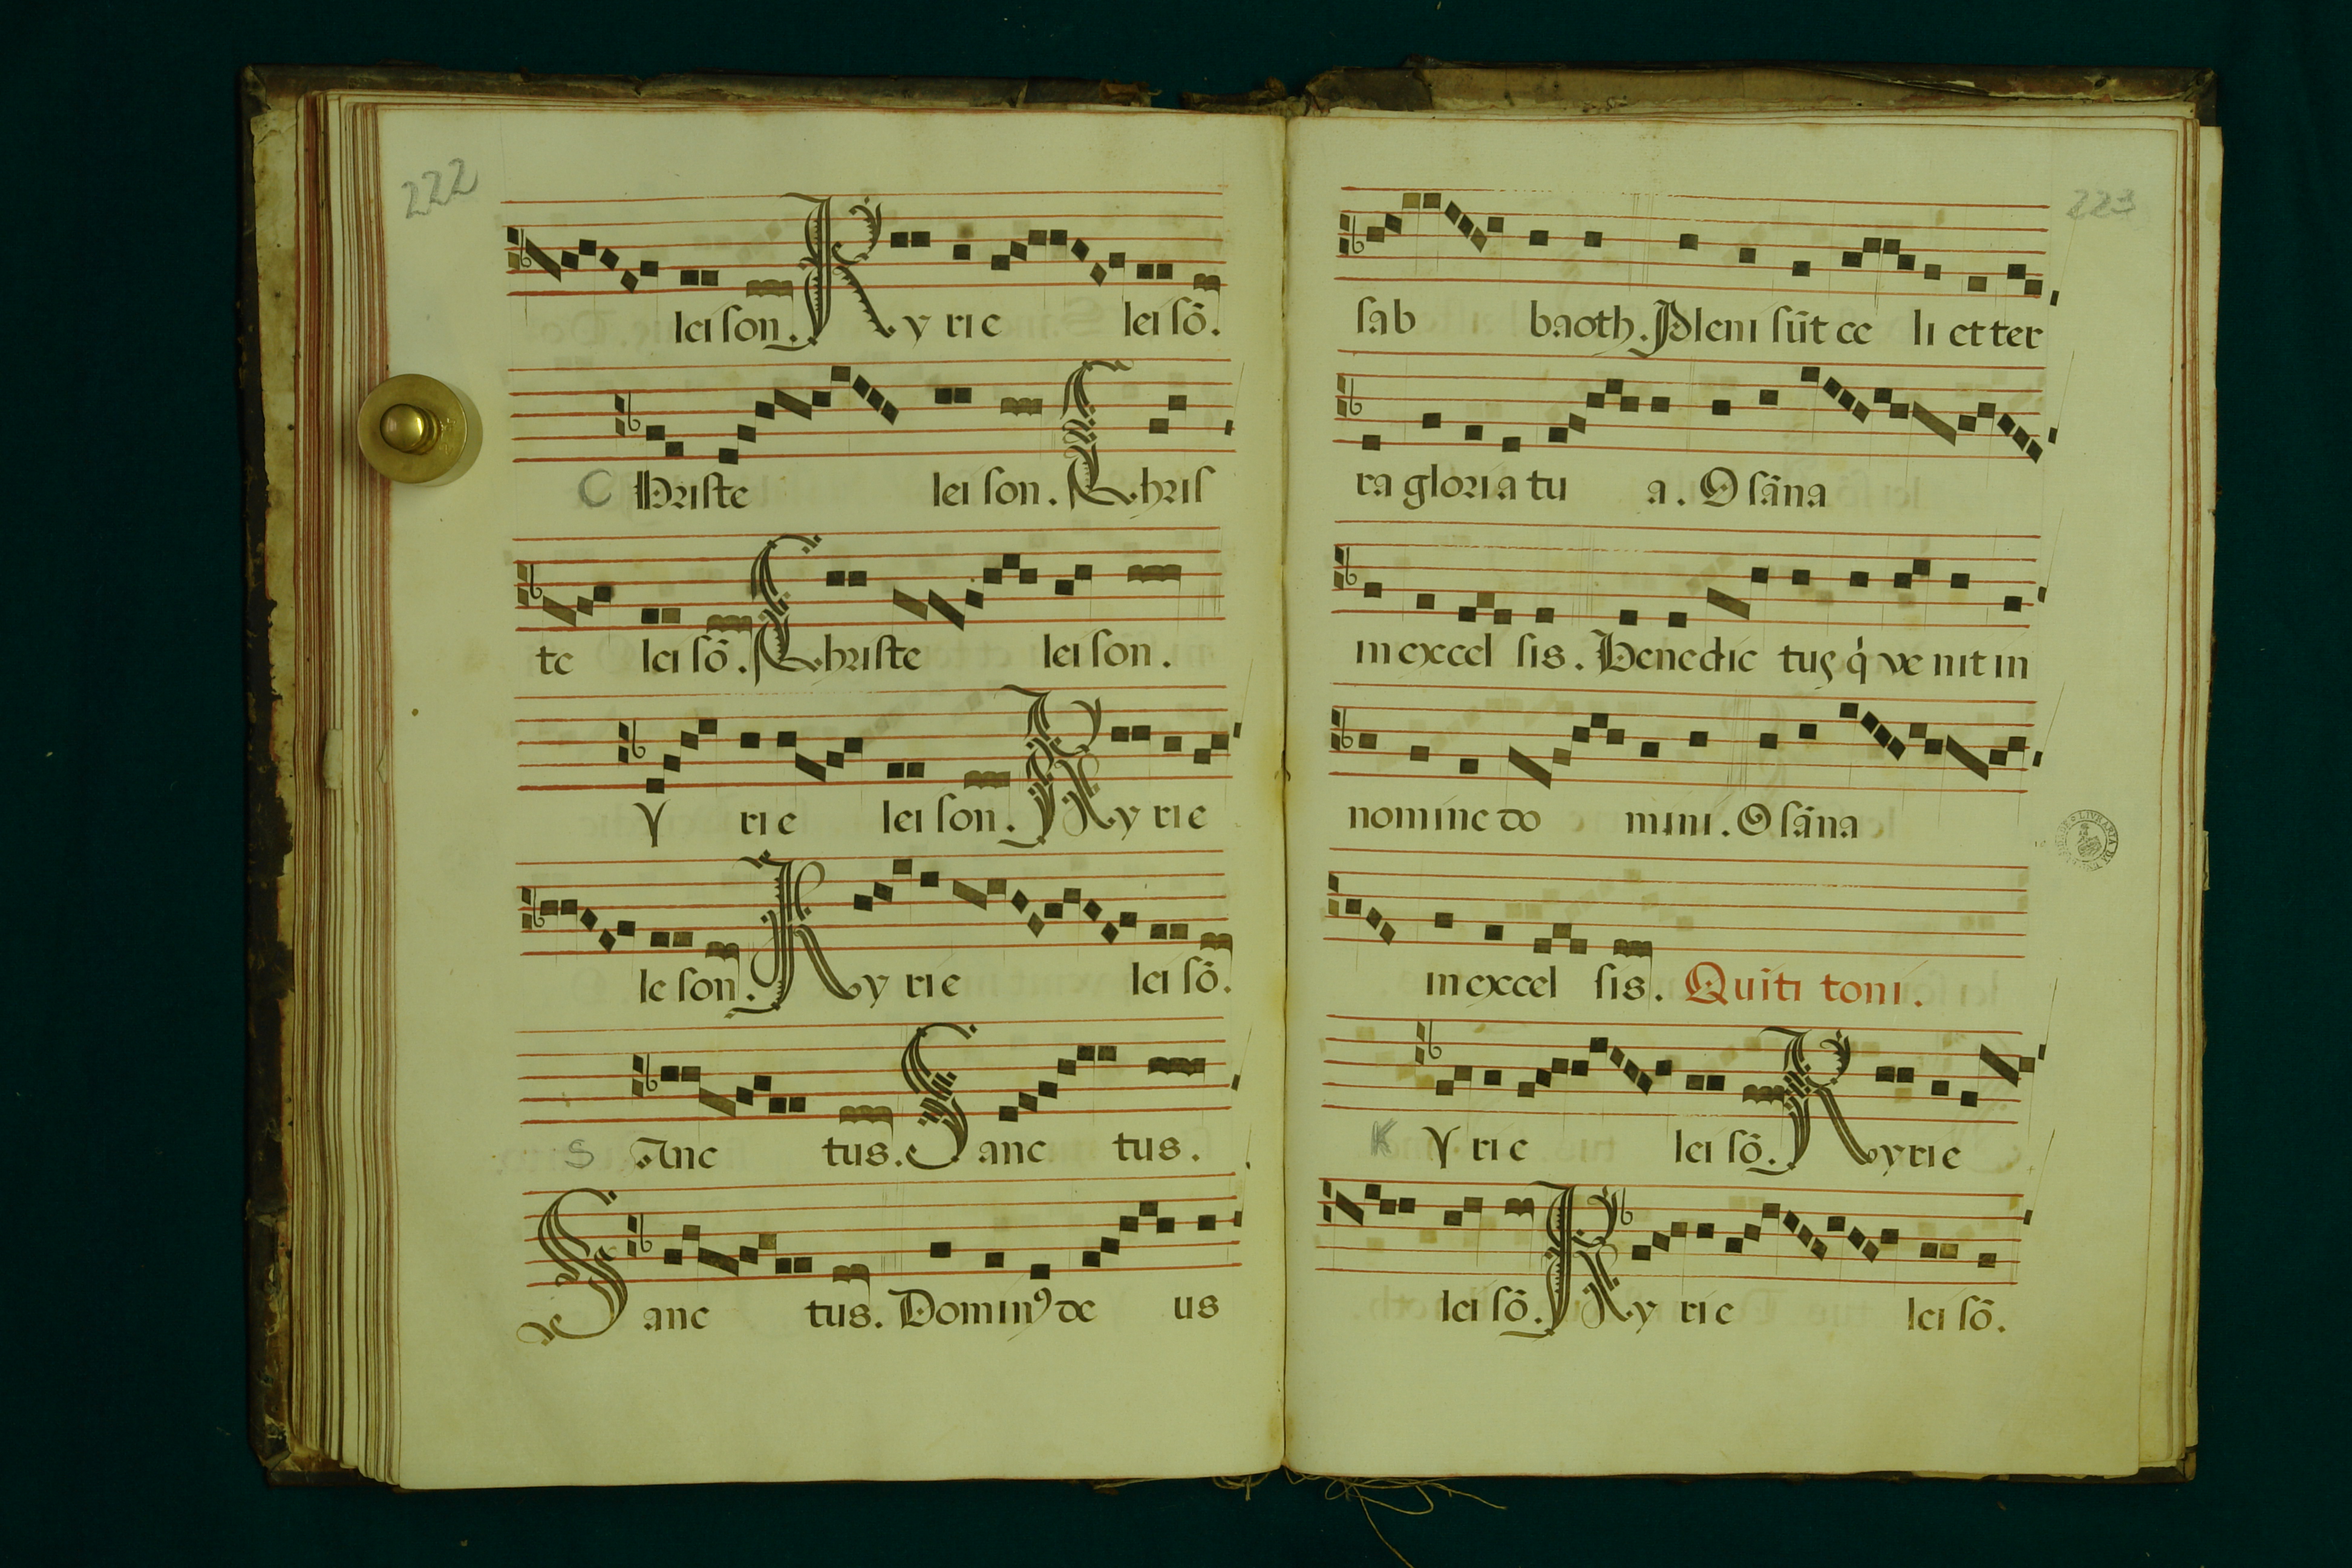 222
lei ſon. Ky rie lei ſõ.
C Hriſte lei ſon. Chriſ
te lei ſõ. Chriſte lei ſon.
Y rie lei ſon. Ky rie
le ſon. Ky rie lei ſõ.
S Anc tus. Sanc tus.
Sanc tus. Dominꝰ de us
223
ſab baoth. Pleni ſũt ce li et ter
ra gloria tu a. O ſãna
in excel ſis. Benedic tus q̇ ve nit in
nomine do mini. O ſãna
in excel ſis. Quĩti toni.
K Y rie lei ſõ. Kyrie
lei ſõ. Ky rie lei ſõ.